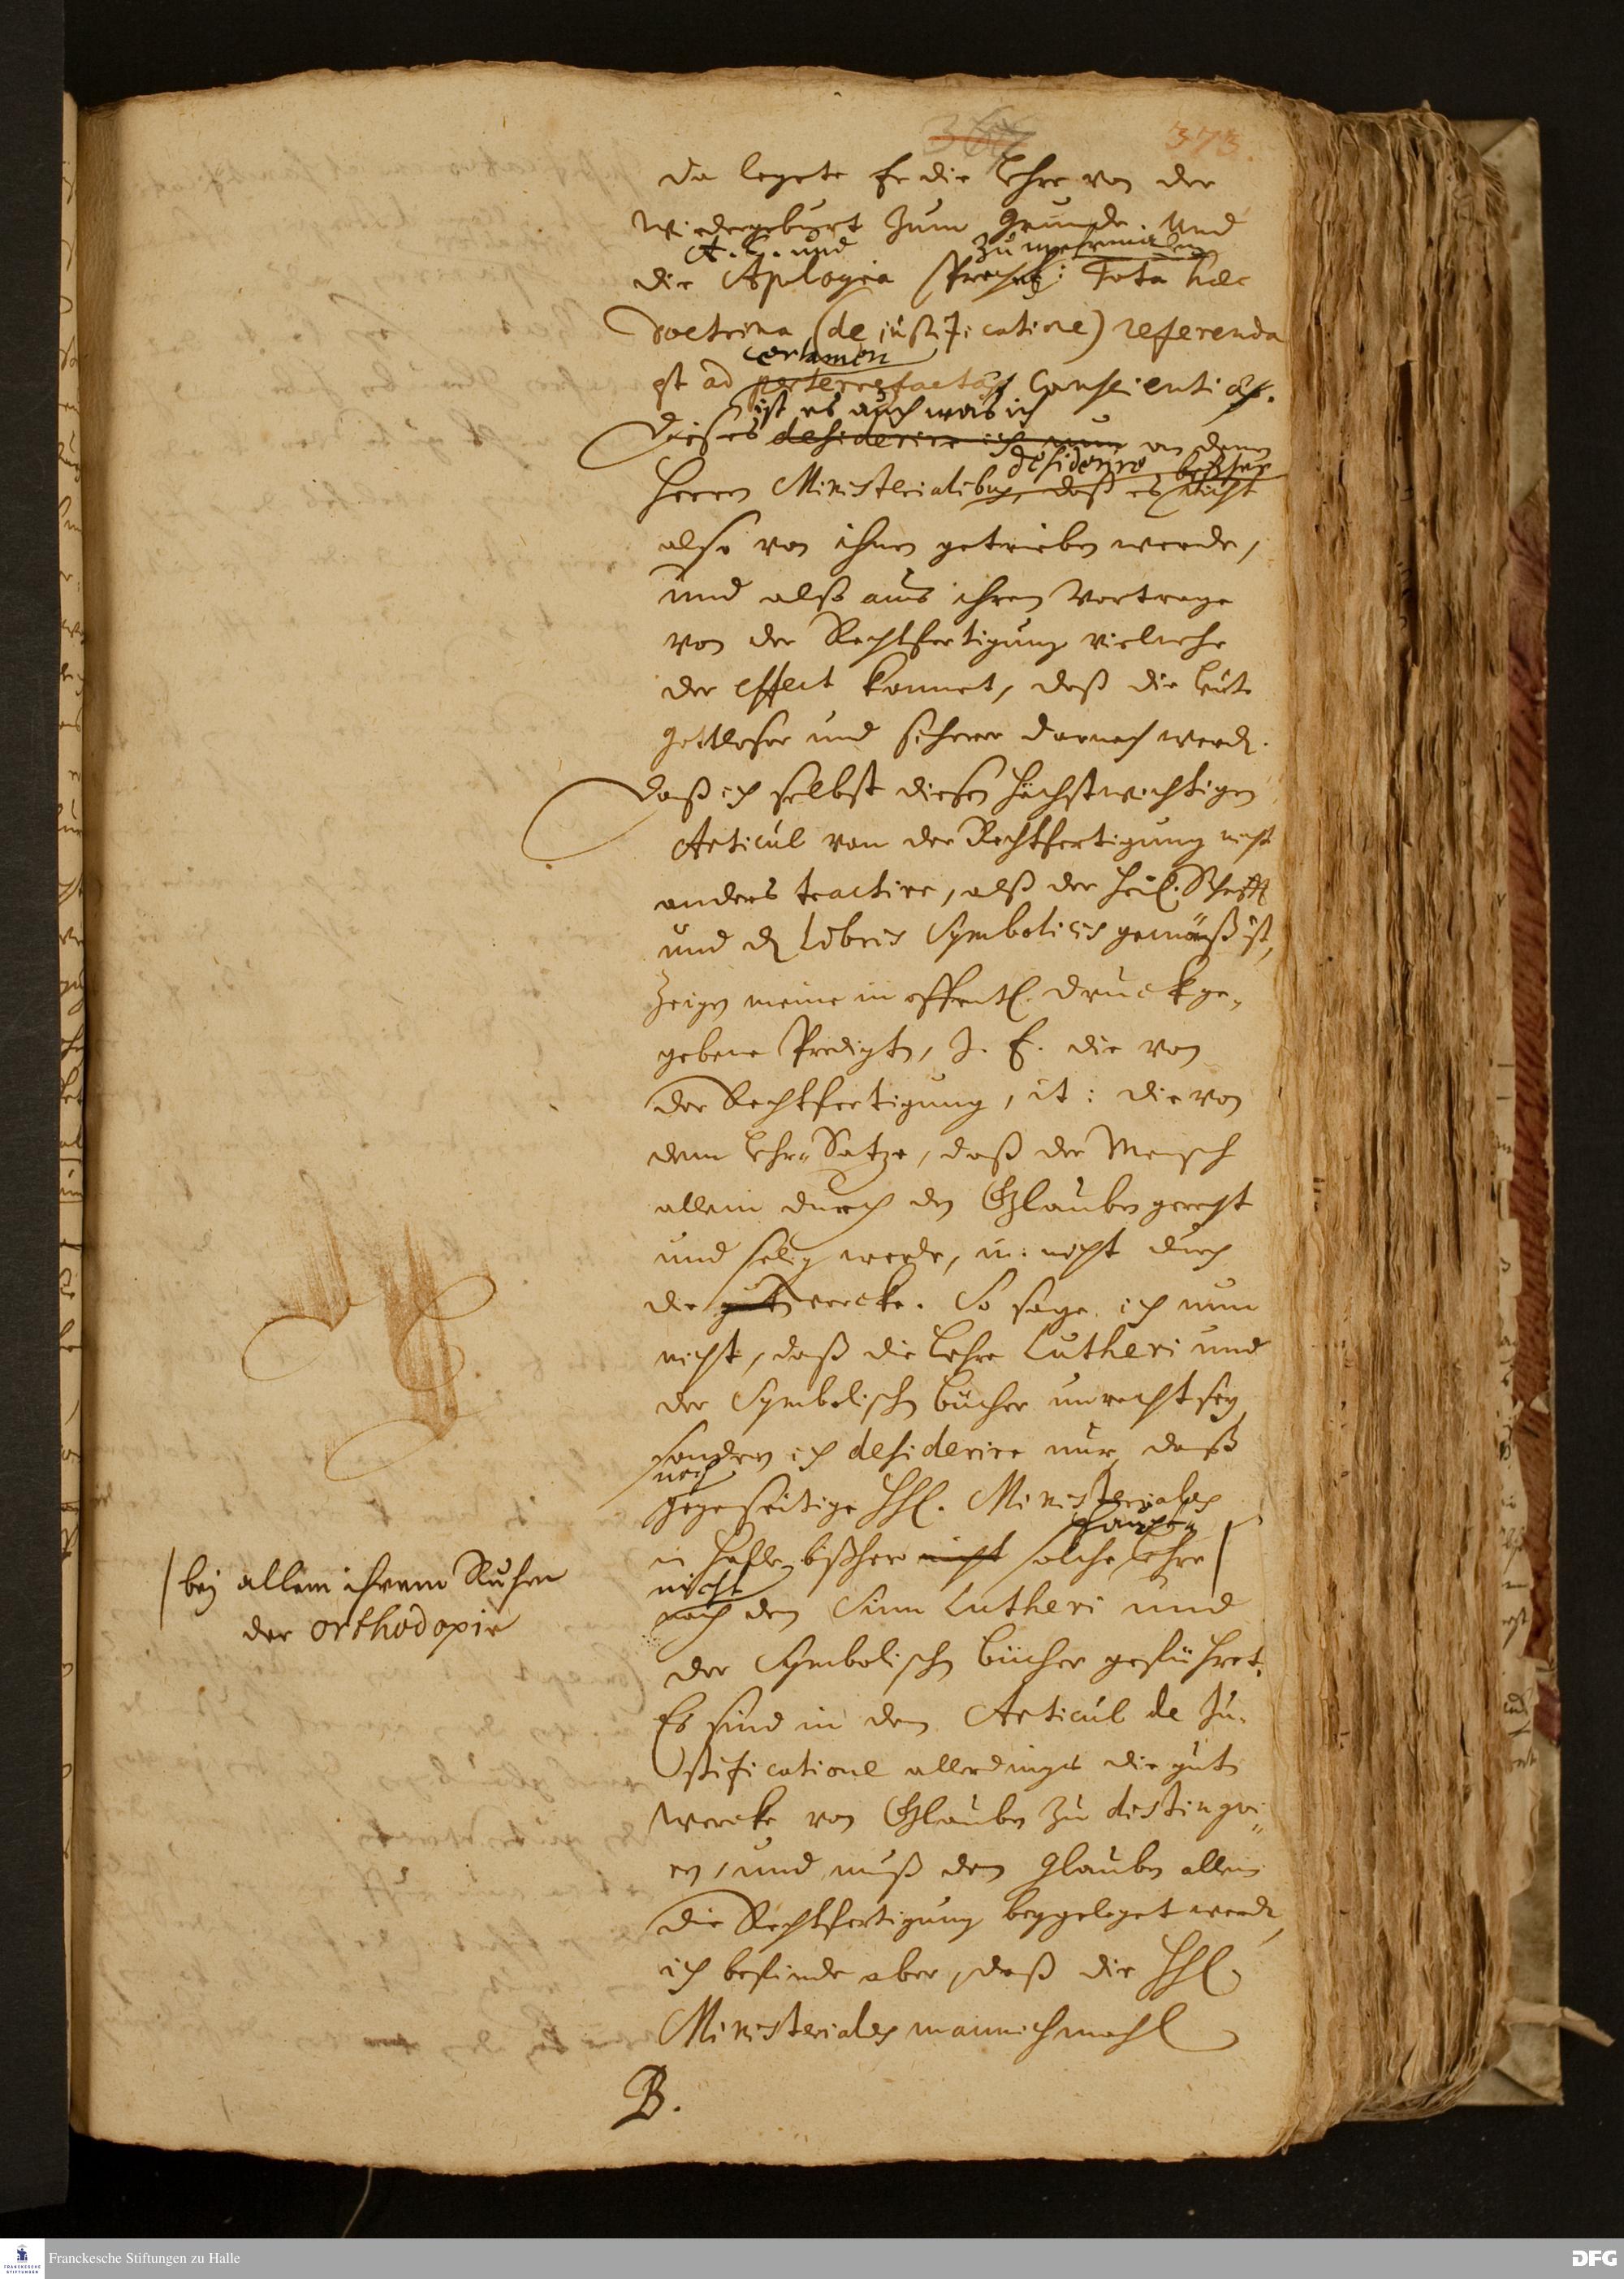 366 373.
da legete Er die Lehre von der
Wiedergeburt zum Grunde. Und
A. C. und zu mehrmalen
die Apologia spricht: Tota haec
doctrina (de justificatione) referenda
certamen
est ad perterrefactae conscientiae.
ist es auch was ich
Dieses desiderire ich nun an denen
desiderire bißher
Herren Ministerialibus, daß es nicht
also von ihnen getrieben werde,
und also aus ihrem Vortrage
von der Rechtfertigung vielmehr
der effect kommet, daß die Leute
gottloser und sicherer darnach werdn.
Daß ich selbst diesen höchstwichtigen
Articul von der Rechtfertigung nicht
anders tractire, alß der Heil. Schrifft
und dn Libris Symbolicis gemäß ist,
zeigen meine in öffentl. Druck ge-
gebene Predigten, Z. E. die von
der Rechtfertigung, it: die von
dem Lehr-Satze, daß der Mensch
allein durch den Glauben gerecht
und selig werde, u. nicht durch
die guten wercke. So sage ich nun
nicht, daß die Lehre Lutheri und
der Symbolischen Bücher unrecht sey,
sondern ich desiderire nur, daß
gegenseitige HHl. Ministeriales
Haupt-
in Halle bißher nicht solche Lehre
/ bey allem ihrem Ruhm
der Orthodoxie
nicht
nach dem Sinn Lutheri und
der Symbolischen Bücher geführet.
Es sind in dem Articul de Ju-
stificatione allerdings die guten
Wercke von Glauben zu distingvi-
ren, und muß dem Glauben allein
die Rechtfertigung beygeleget werdn,
ich befinde aber, daß die HHl.
Ministeriales mannichmahl
B.
Franckesche Stiftungen zu Halle
DFG